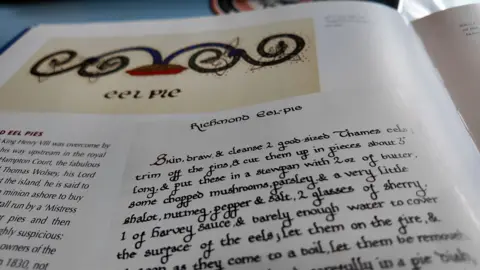 eel pie
Richmond Eel-pie
Skin, draw, & cleanse 2 good-sized Thames eels,
trim off the fins, & cut them up in pieces about 3"
long, & put these in a stewpan with 2 oz of butter,
some chopped mushrooms, parsley, & a very little
shalot, nutmeg, pepper & salt, 2 glasses of sherry,
1 of Harvey sauce, & barely enough water to cover
the surface of the eels; let them on the fire, &
as soon as they come to a boil, let them be removed
carefully in a pie dish,
EEL PIES
King Henry VIII was overcome by
his way upstream in the royal
Hampton Court, the fabulous
Thomas Wolsey, his Lord
the island, he is said to
minion ashore to buy
stall run by a 'Mistress
pies and then
highly suspicious;
owners of the
1830, not